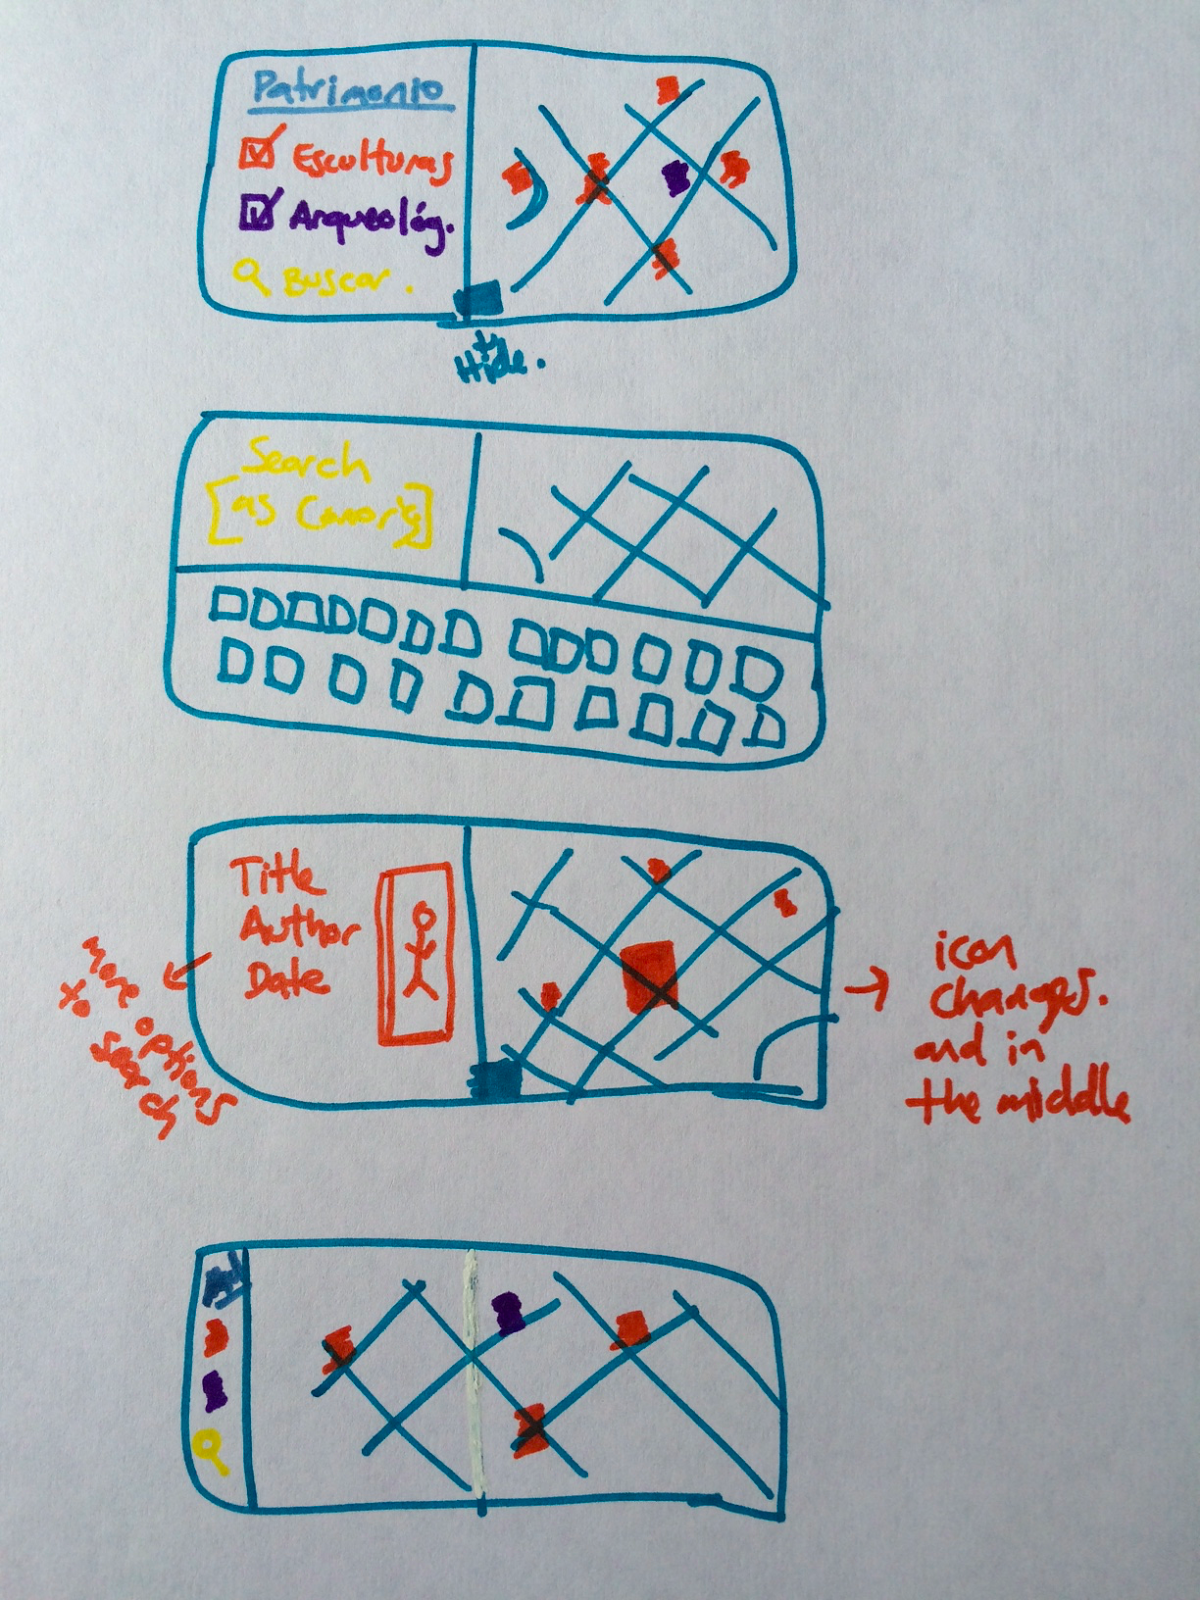 Patrimonio
Esculturas
Arqueológ.
Buscar.
to
Hide.
Search
Title
Author
Date
more options
to search
icon
changes.
and in
the middle